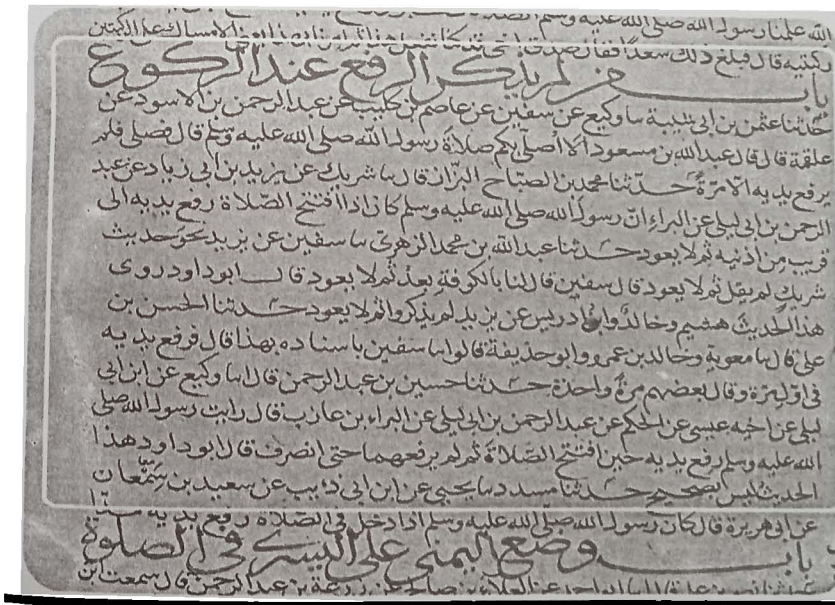 الله علمنا رسول الله صلى الله عليه وسلم الصلاة
ركبتيه قال فبلغ ذلك سعدا فقال صدق اخي قد كنا نفعل هذا ثم امرنا بهذا يعني الامساك على الركبتين
باب من لم يذكر الرفع عند الركوع
حدثنا عثمن بن ابي شيبة نا وكيع عن سفين عن عاصم بن كليب عن عبد الرحمن بن الاسود عن
علقمة قال قال عبد الله بن مسعود الا اصلي بكم صلاة رسول الله صلى الله عليه وسلم قال فصلى فلم
يرفع يديه الا مرة حدثنا محمد بن الصباح البزاز قال نا شريك عن يزيد بن ابي زياد عن عبد
الرحمن بن ابي ليلى عن البراء ان رسول الله صلى الله عليه وسلم كان اذا افتتح الصلاة رفع يديه الى
قريب من اذنيه ثم لا يعود حدثنا عبد الله بن محمد الزهري نا سفين عن يزيد نحو حديث
شريك لم يقل ثم لا يعود قال سفين قال لنا بالكوفة بعد ثم لا يعود قال ابو داود روى
هذا الحديث هشيم وخالد وابن ادريس عن يزيد لم يذكروا ثم لا يعود حدثنا الحسن بن
علي قال نا معوية وخالد بن عمرو وابو حذيفة قالوا نا سفين باسناده بهذا قال فرفع يديه
في اول مرة وقال بعضهم مرة واحدة حدثنا حسين بن عبد الرحمن قال انا وكيع عن ابن ابي
ليلى عن اخيه عيسى عن الحكم عن عبد الرحمن بن ابي ليلى عن البراء بن عازب قال رايت رسول الله صلى
الله عليه وسلم رفع يديه حين افتتح الصلاة ثم لم يرفعهما حتى انصرف قال ابو داود هذا
الحديث ليس بصحيح حدثنا مسدد نا يحيى عن ابن ابي ذيب عن سعيد بن سمعان
عن ابي هريرة قال كان رسول الله صلى الله عليه وسلم اذا دخل في الصلاة رفع يديه مدا
باب وضع اليمنى على اليسرى في الصلوة
حدثنا نصر بن علي قال انا ابو احمد عن العلاء بن صالح عن زرعة بن عبد الرحمن قال سمعت ابن